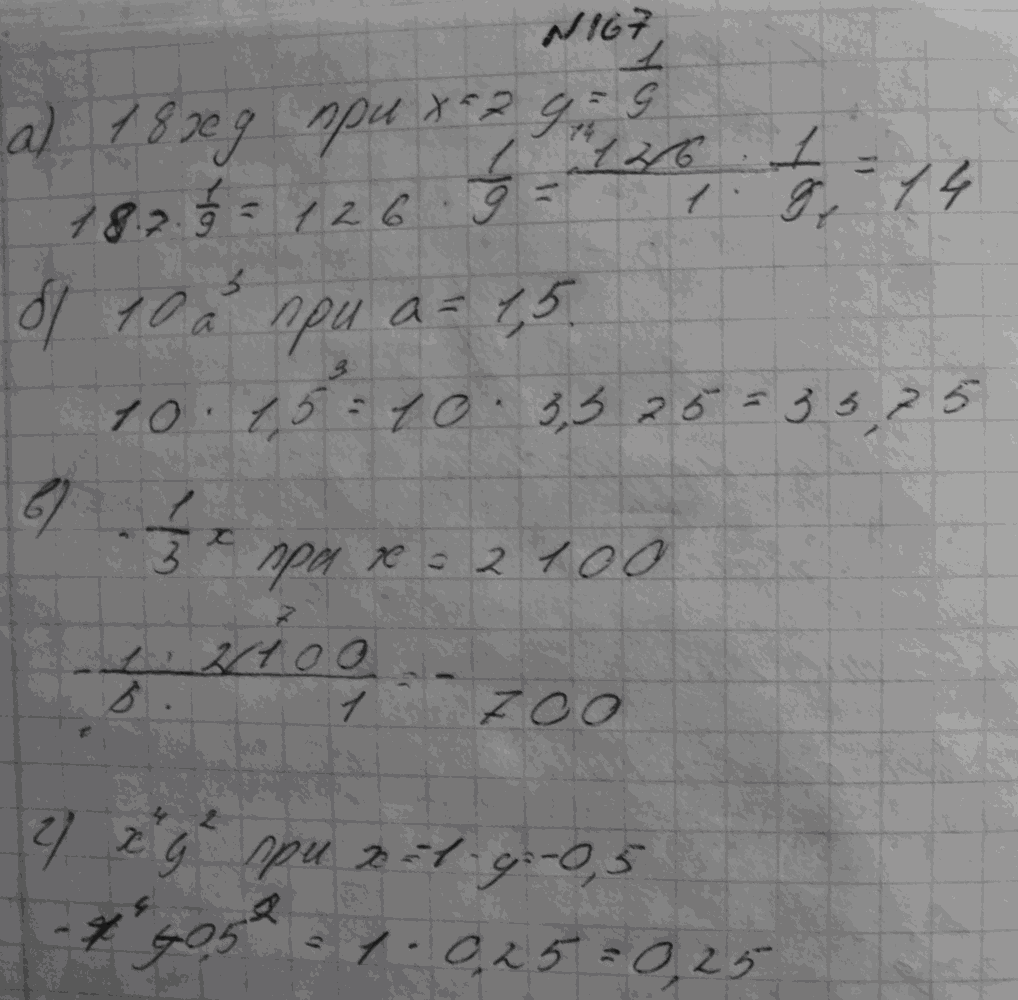 N167
а) 18xy при x=7 y=1/9
18·7·1/9 = 126 · 1/9 = 126 · 1 / 1 · 9 = 14
14
1
б) 10a³ при a = 1,5
10 · 1,5³ = 10 · 3,375 = 33,75
в) -1/3 x при x = 2100
7
-1 · 2100 / 3 · 1 = -700
г) x⁴y² при x=-1 y=-0,5
-1⁴ 0,5² = 1 · 0,25 = 0,25